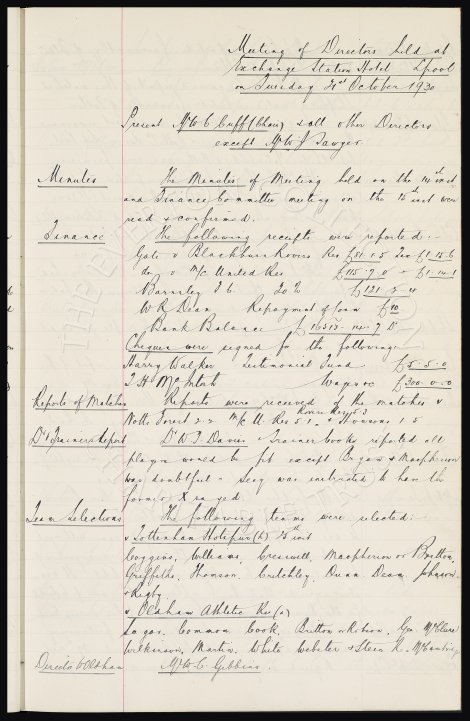 Meeting of Directors held at
Exchange Station Hotel L'pool
on Tuesday 21st October 1930
Present Mr W C Cuff (Chair) & all other Directors
except Mr W J Sawyer
Minutes The Minutes of Meeting held on the 14th inst
and Finance Committee meeting on the inst were
read & confirmed.
Finance The following receipts were reported:-
Gate v Blackburn Rovers Res £51.1.5 Less £1.15.6
do v M/C United Res £115.7.0 - £1.14.1
Barnsley F.C. 20% £121.5.4
W R Dean Repayment of loan £10
Bank Balance
Cheques were signed for the following:
Harry Walker Testimonial Fund £5.5.0
T H McIntosh Wages &c £300.0.0
Reports of Matches Reports were received of the matches v
Notts Forest 2.2 M/C U. Res 5.1 5.3
Dr & Trainers Report Dr W T Davies & Trainer books reported all
players would be fit except & Macpherson
was doubtful - Secy was instructed to have the
former X rayed
Team Selections The following teams were selected:-
v Tottenham Hotspur (h) 25th inst
Coggins, Williams, Cresswell, Macpherson or Britton,
Griffiths, Thomson, Critchley, Dunn, Dean, Johnson
& Rigby
v Oldham Athletic Res (a)
Sagar, Common, Cook, Britton or Robson, Gee, McClure
Wilkinson, Martin, White, Webster & Stein R. McCambridge
Director to Oldham Mr W C Gibbins.